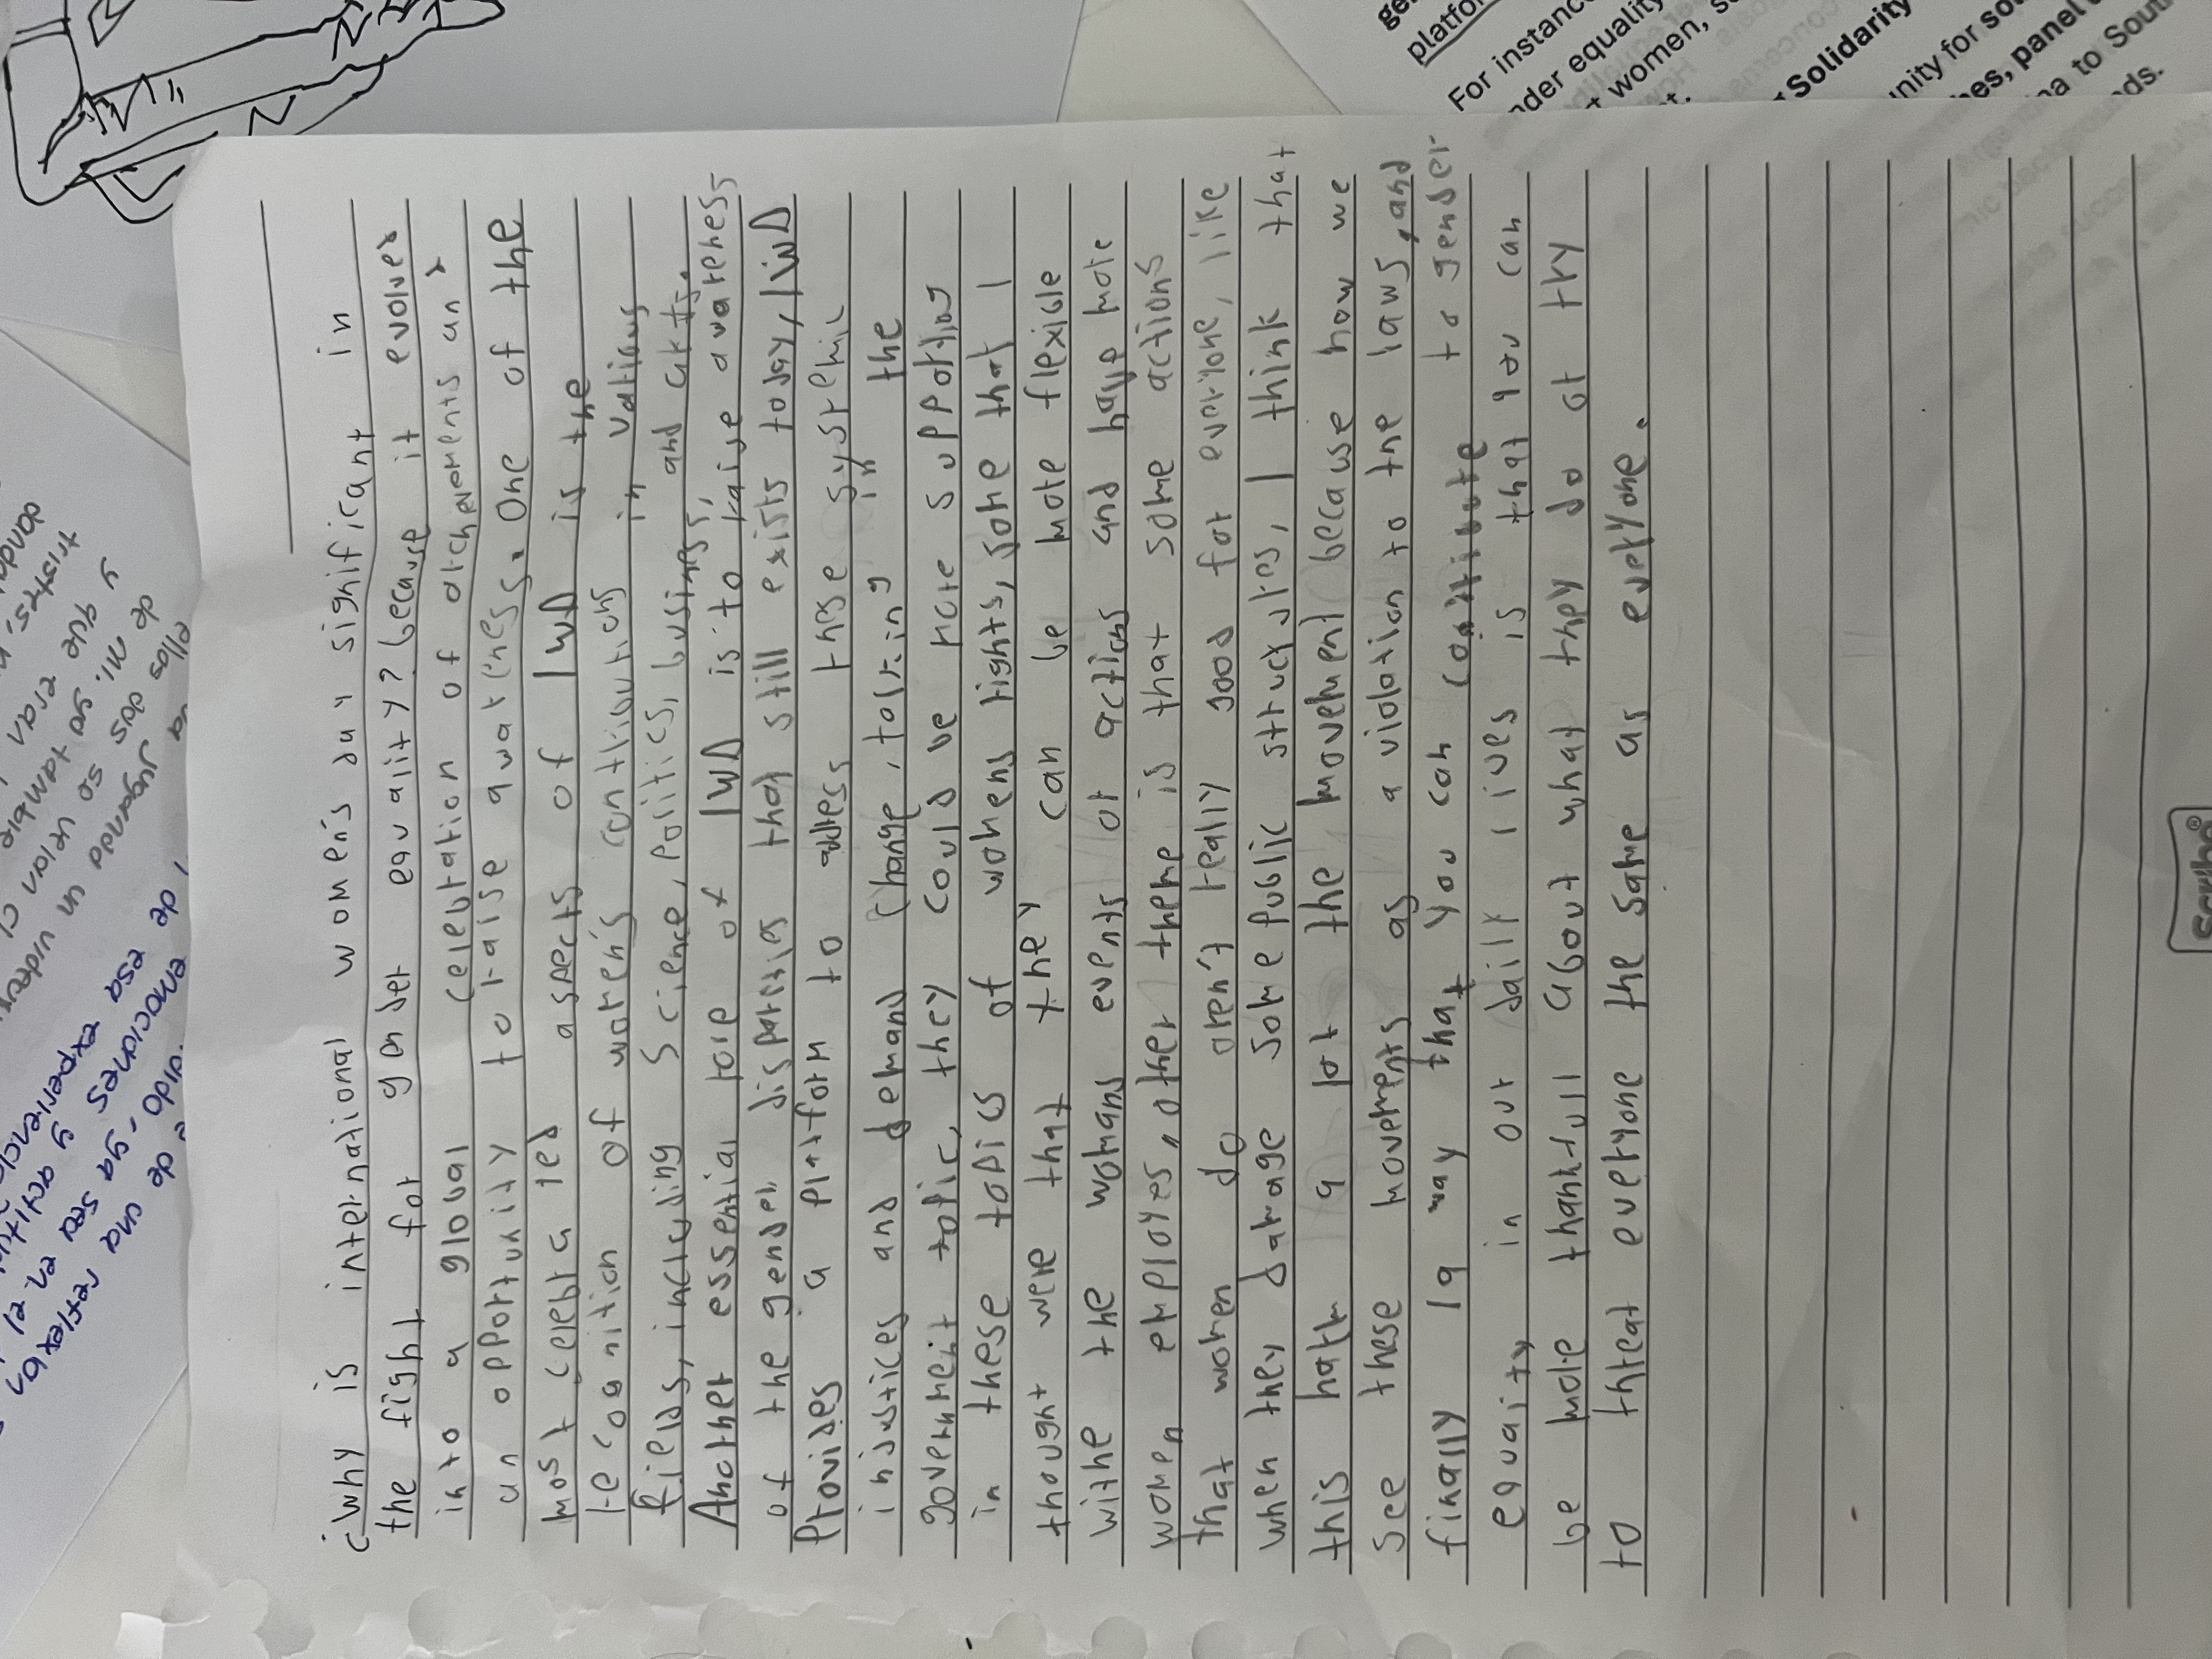 ¿why is international women's day significant in
the fight for gender equality? because it evolved
into a global celebration of atchevements and
an opportunity to raise awariness. One of the
most celebrated aspects of IWD is the
recognition of women's contributions in various
fields, including science, politics, business, and arts.
Another essential role of IWD is to raise awareness
of the gender disparities that still exists today, IWD
Provides a platform to adress these systemic
injustices and demand change, talking in the
government topic, they could be more supporting
in these topics of womens rights, some that I
thought were that they can be more flexible
withe the womans events or actions and have more
women employes, other theme is that some actions
that women do aren't really good for everione, like
when they damage some public structures, I think that
this harm a lot the movement because now we
see these movements as a violation to the laws, and
finally la way that you can contribute to gender
equality in our daily lives is that you can
be more thankfull about what they do or try
to threat everyone the same as everyone.
For instance
platfor
nder equality
women, s
Solidarity
unity for sou
hes, panel
na to Sout
ds.
y que eran
de mi, ya también
ellos aus so venlos
juganda un videoju
de esa experiencia
emociones y actitu
oido, ya sea en el
de una reflexión
Scribe®